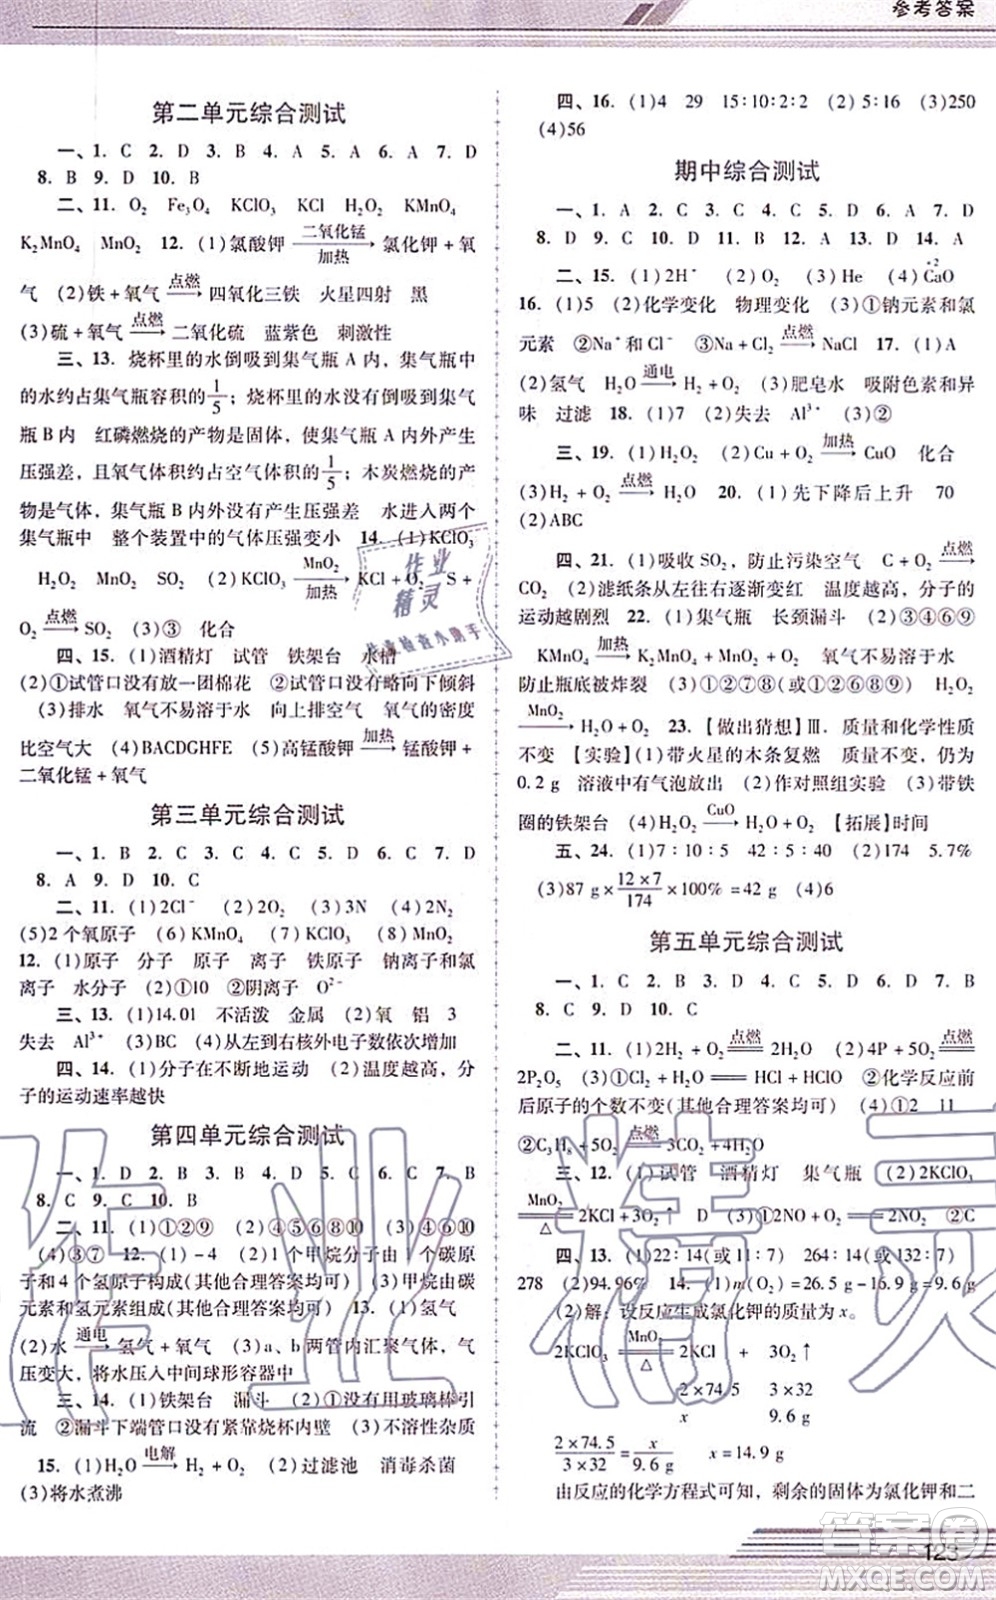 参考答案
第二单元综合测试
一、1. C 2. D 3. B 4. A 5. A 6. A 7. D
8. B 9. D 10. B
二、11. O₂ Fe₃O₄ KClO₃ KCl H₂O₂ KMnO₄
K₂MnO₄ MnO₂ 12. (1)氯酸钾 —二氧化锰/加热→ 氯化钾+氧
气 (2)铁+氧气 —点燃→ 四氧化三铁 火星四射 黑
(3)硫+氧气 —点燃→ 二氧化硫 蓝紫色 刺激性
三、13. 烧杯里的水倒吸到集气瓶 A 内，集气瓶中
的水约占集气瓶容积的1/5；烧杯里的水没有倒吸到集气
瓶 B 内 红磷燃烧的产物是固体，使集气瓶 A 内外产生
压强差，且氧气体积约占空气体积的1/5；木炭燃烧的产
物是气体，集气瓶 B 内外没有产生压强差 水进入两个
集气瓶中 整个装置中的气体压强变小 14. (1)KClO₃
H₂O₂ MnO₂ SO₂ (2)KClO₃ —MnO₂/加热→ KCl+O₂ S+
O₂ —点燃→ SO₂ (3)③ 化合
四、15. (1)酒精灯 试管 铁架台 水槽
(2)①试管口没有放一团棉花 ②试管口没有略向下倾斜
(3)排水 氧气不易溶于水 向上排空气 氧气的密度
比空气大 (4)BACDGHFE (5)高锰酸钾 —加热→ 锰酸钾+
二氧化锰+氧气
第三单元综合测试
一、1. B 2. C 3. C 4. B 5. C 6. C 7. D
8. A 9. D 10. C
二、11. (1)2Cl⁻ (2)2O₂ (3)3N (4)2N₂
(5)2 个氧原子 (6)KMnO₄ (7)KClO₃ (8)MnO₂
12. (1)原子 分子 原子 离子 铁原子 钠离子和氯
离子 水分子 (2)①10 ②阴离子 O²⁻
三、13. (1)14.01 不活泼 金属 (2)氧 铝 3
失去 Al³⁺ (3)BC (4)从左到右核外电子数依次增加
四、14. (1)分子在不断地运动 (2)温度越高，分
子的运动速率越快
第四单元综合测试
一、1. D 2. B 3. B 4. D 5. C 6. C 7. B
8. C 9. C 10. B
二、11. (1)①②⑨ (2)③⑤⑥⑧⑩ (3)④⑥⑩
(4)③⑦ 12. (1)-4 (2)1 个甲烷分子由 1 个碳原
子和 4 个氢原子构成(其他合理答案均可) (3)甲烷由碳
元素和氢元素组成(其他合理答案均可) 13. (1)氢气
(2)水 —通电→ 氢气+氧气 (3)a、b 两管内汇聚气体，气
压变大，将水压入中间球形容器中
三、14. (1)铁架台 漏斗 (2)①没有用玻璃棒引
流 ②漏斗下端管口没有紧靠烧杯内壁 (3)不溶性杂质
15. (1)H₂O —电解→ H₂+O₂ (2)过滤池 消毒杀菌
(3)将水煮沸
四、16. (1)4 29 15∶10∶2∶2 (2)5∶16 (3)250
(4)56
期中综合测试
一、1. A 2. C 3. C 4. C 5. D 6. A 7. D
8. D 9. C 10. D 11. D 12. A 13. D 14. A
二、15. (1)2H⁺ (2)O₂ (3)He (4)C̊aO +2
16. (1)5 (2)化学变化 物理变化 (3)①钠元素和氯
元素 ②Na⁺和 Cl⁻ ③Na+Cl₂ —点燃→ NaCl 17. (1)A
(2)氢气 H₂O —通电→ H₂+O₂ (3)肥皂水 吸附色素和异
味 过滤 18. (1)7 (2)失去 Al³⁺ (3)②
三、19. (1)N₂ (2)Cu+O₂ —加热→ CuO 化合
(3)H₂+O₂ —点燃→ H₂O 20. (1)先下降后上升 70
(2)ABC
四、21. (1)吸收 SO₂，防止污染空气 C+O₂ —点燃→
CO₂ (2)滤纸条从左往右逐渐变红 温度越高，分子的
运动越剧烈 22. (1)集气瓶 长颈漏斗 (2)③④⑥⑨
KMnO₄ —加热→ K₂MnO₄+MnO₂+O₂ 氧气不易溶于水
防止瓶底被炸裂 (3)①②⑦⑧(或①②⑥⑨) H₂O₂
—MnO₂→ H₂O+O₂ 23. 【做出猜想】Ⅲ. 质量和化学性质
不变 【实验】(1)带火星的木条复燃 质量不变，仍为
0.2 g 溶液中有气泡放出 (2)作对照组实验 (3)带铁
圈的铁架台 (4)H₂O₂ —CuO→ H₂O+O₂ 【拓展】时间
五、24. (1)7∶10∶5 42∶5∶40 (2)174 5.7%
(3)87 g×(12×7)/174×100%=42 g (4)6
第五单元综合测试
一、1. C 2. D 3. B 4. C 5. D 6. D 7. B
8. C 9. D 10. C
二、11. (1)2H₂+O₂ =点燃= 2H₂O (2)4P+5O₂ =点燃=
2P₂O₅ (3)①Cl₂+H₂O == HCl+HClO ②化学反应前
后原子的个数不变(其他合理答案均可) (4)①2 11
②C₃H₈+5O₂ =点燃= 3CO₂+4H₂O
三、12. (1)试管 酒精灯 集气瓶 (2)2KClO₃
=MnO₂/△= 2KCl+3O₂↑ D (3)①2NO+O₂ == 2NO₂ ②C
四、13. (1)22∶14(或 11∶7) 264∶14(或 132∶7)
278 (2)94.96% 14. (1)m(O₂)=26.5 g-16.9 g=9.6 g
(2)解：设反应生成氯化钾的质量为 x。
2KClO₃ =MnO₂/△= 2KCl + 3O₂↑
2×74.5 3×32
x 9.6 g
(2×74.5)/(3×32)=x/9.6 g x=14.9 g
由反应的化学方程式可知，剩余的固体为氯化钾和二
123
作业精灵
作业检查小助手
作业精灵
答案圈
MXQE.COM